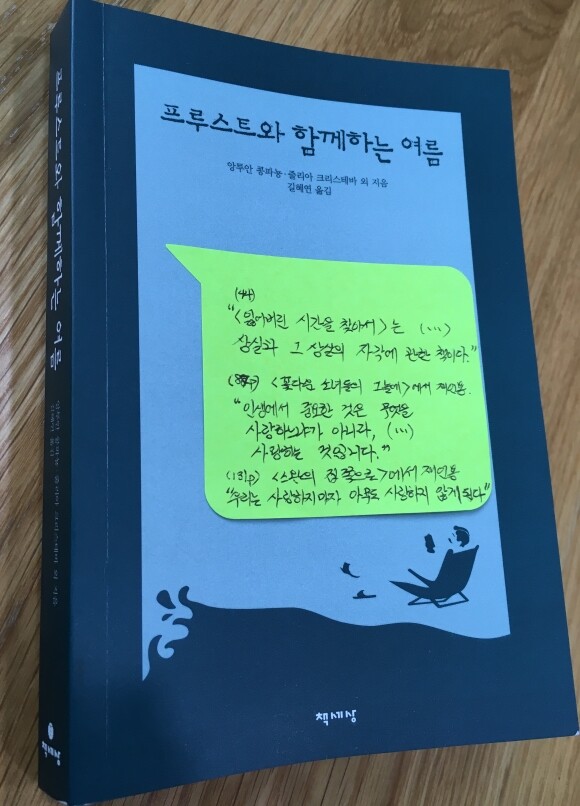 프루스트와 함께하는 여름
앙투안 콩파뇽·줄리아 크리스테바 외 지음
길혜연 옮김
(44)
“<잃어버린 시간을 찾아서>는 (...)
상실과 그 상실의 자각에 관한 책이다.”
<꽃다운 소녀들의 그늘에>에서 재인용.
“인생에서 중요한 것은 무엇을
사랑하느냐가 아니라, (...)
사랑하는 것입니다.”
(131p) <스완의 집 쪽으로>에서 재인용
“우리는 사랑하지마자 아무도 사랑하지 않게 된다”
책세상
프루스트와 함께하는 여름
앙투안 콩파뇽·줄리아 크리스테바 외 지음
길혜연 옮김
책세상